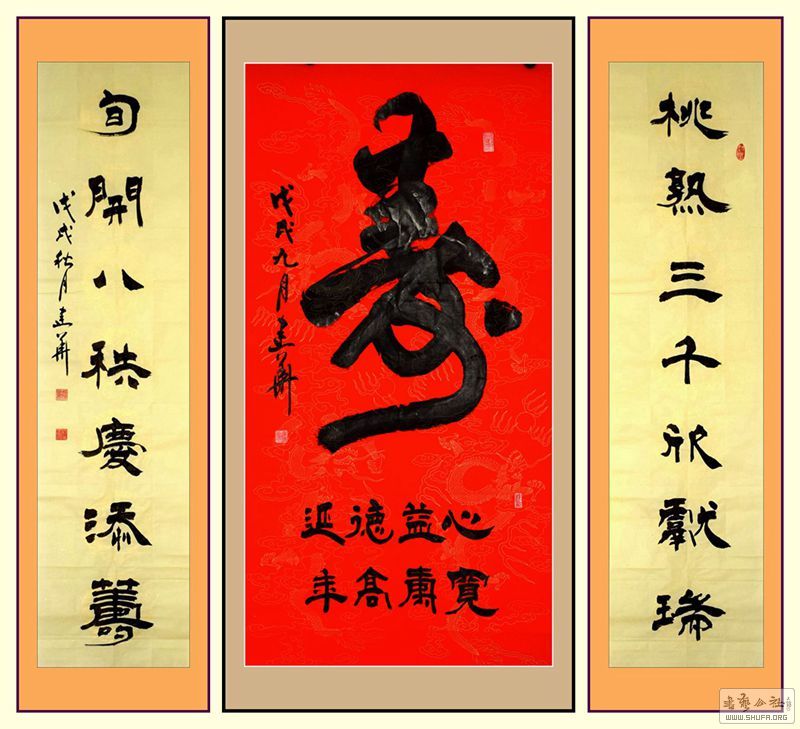 桃熟三千欣獻瑞
壽
戊戌九月建華
心寬
益
德高
延年
旬開八秩慶添籌
戊戌秋月建華
書藝公社
WWW.SHUFA.ORG